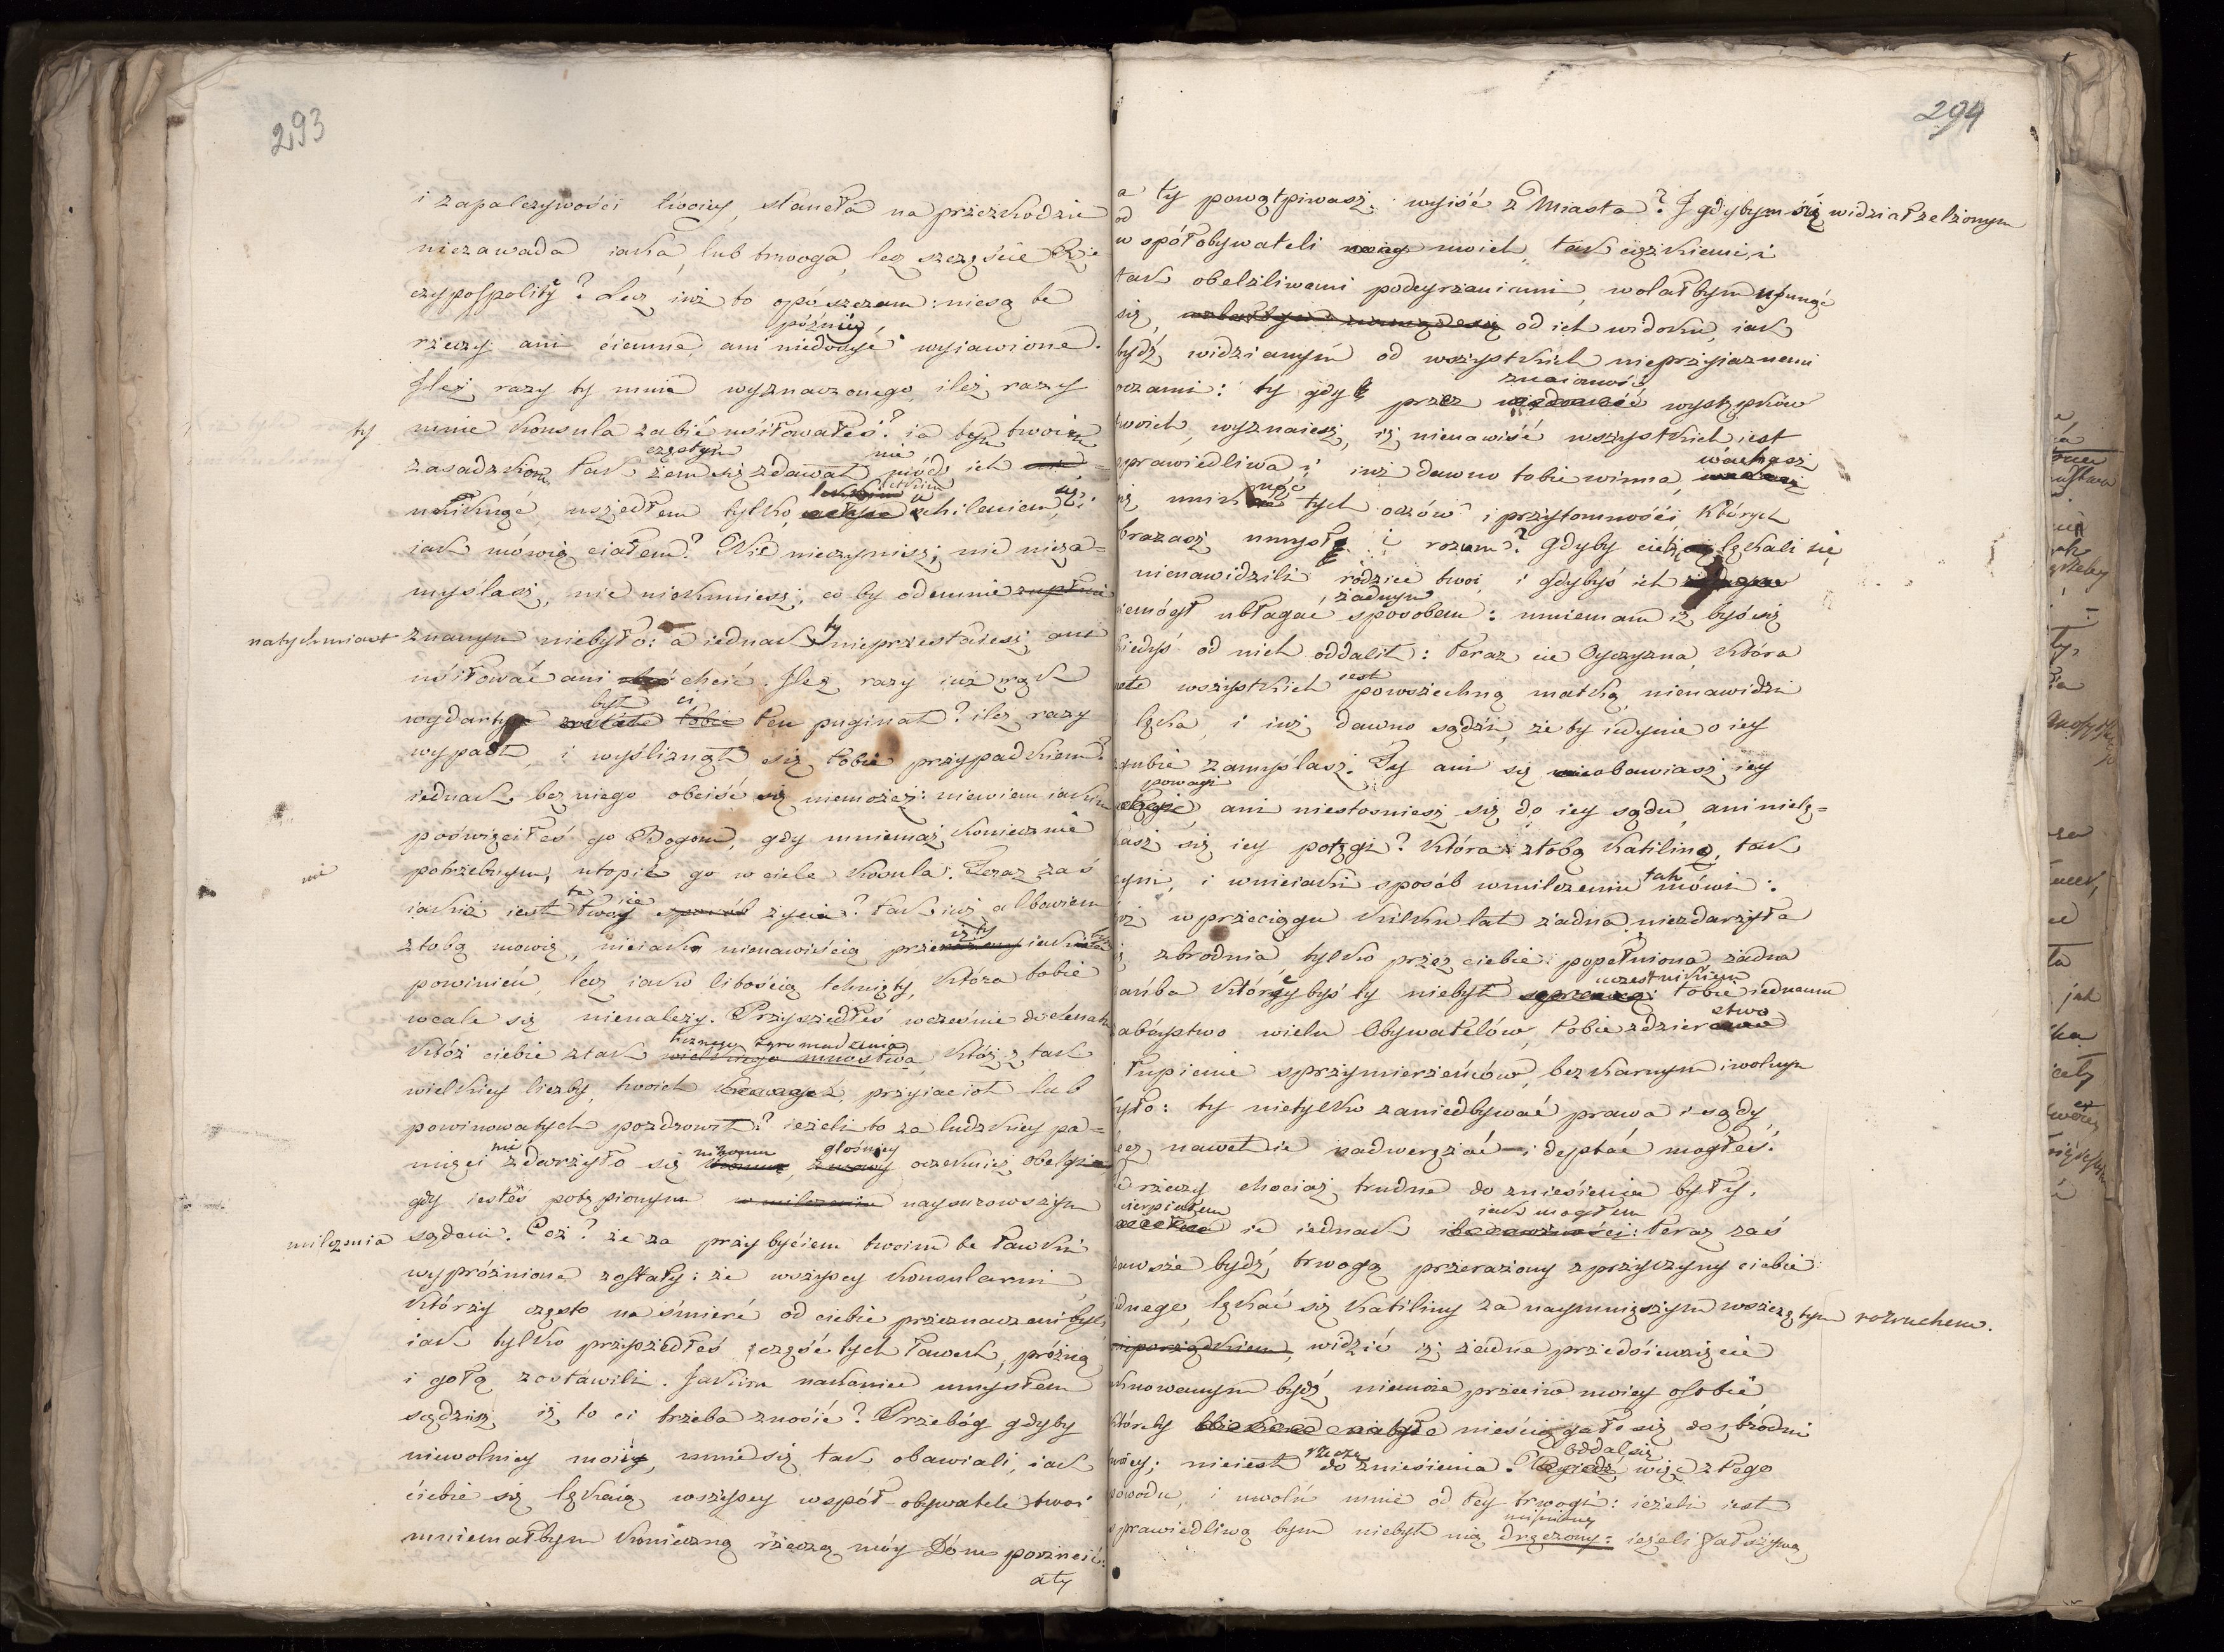 293
i zapalczywości twoiey, stanęła na przeszkodzie
niezawada iaka, lub trwoga, lecz szczęście Rze
czypospolitey? Lecz iuż to opószczam: niesą te
późniey
rzeczy ani ciemne, ani niedosyć wyiawione.
Ileż razy ty mnie wyznaczonego, ileż razy
ty mnie Konsula zabić usiłowałeś? ia tym twoim
częstym nie
zasadzkom, tak żem się zdawał módz ich
letkim
uniknąć, uszedłem tylko uchileniem się i
iak mówią ciałem? Nic nieczynisz, nic nieza=
myślasz, nic nieknuiesz, co by odemnie
natychmiast znanym niebyło: a iednak ty nieprzestaiesz ani
usiłować ani chcieć. Ileż razy iuż z rąk
był ci
wydarty ten puginał? ileż razy
wypadł, i wyśliznął się tobie przypadkiem?
iednak bez niego obeiść się niemożesz: niewiem iakim
poświęciłeś go Bogom, gdy mniemasz koniecznie
potrzebnym, utopić go w ciele Konsula. Teraz zaś
nie
iakież iest to twoie życie? tak iuż albowiem
z tobą mowię, nieiako nienawiścią przeięty iak
powinien, lecz iako litością tchnięty, która tobie
wcale się nienależy. Przyszedłeś wcześnie do Senatu
licznego zgromadzenia
Któż ciebie z tak wielkiego mnostwa, któż z tak
wielkiey liczby, twoich przyiaciół lub
powinowatych pozdrowił? ieżeli to za ludzkiey pa=
nikomu głośniey
mięci nie zdarzyło się oczekuiesz obelgi
gdy iesteś potępionym w milczeniu naysurowszym
milczenia sądem. Coż? że za przybyciem twoim te ławki
wypróżnione zostały: że wszyscy Konsularni,
którzy często na śmierć od ciebie przeznaczeni byli,
iak tylko przyszedłeś część tych ławek, próżną
i gołą zostawili. Jakim nakoniec umysłem
sądzisz, iż to ci trzeba znosić? Przebóg gdyby
niewolnicy moi, mnie się tak obawiali, iak
ciebie się lękaią wszyscy współ-obywatele twoi
mniemałbym konieczną rzeczą móy Dóm porzucić:
a ty
294
a ty powątpiwasz wyiść z Miasta? I gdybym się widział zelżonym
od
współobywateli moich, tak ciężkiemi, i
tak obelżliwemi podeyrzeniami, wolałbym usunąć
się, od ich widoku, iak
bydź widzianym od wszystkich nieprzyiaznemi
znaiomość
oczami: ty gdy przez wystęków
twoich, wyznaiesz, iż nienawiść wszystkich iest
wachasz
sprawiedliwa i iuż dawno tobie winna,
nąć
się unik tych oczów i przytomności, których
obrażasz umysł i rozum? Gdyby ciebie lękali się
i nienawidzili rodzice twoi i gdybyś ich
żadnym
niemógł ubłagać sposobem: mniemam iż byś się
kiedyś od nich oddalił: teraz cie Oyczyzna, która
iest
wszystkich powszechną matką, nienawidzi
i lęka, i iuż dawno sądzi, że by iedynie o iey
zgubie zamyślasz. Ty ani się obawiasz iey
powagi
ani niestosuiesz się do iey sądu, ani nielę=
kasz się iey potęgi? Która z tobą Katilino, tak
tak
czyni, i wnieiaki sposób w milczeniu mówi:
iuż w przeciągu kilku lat żadna niezdarzyła
się zbrodnia, tylko przez ciebie popełniona, żadna
uczestnikiem
hańba którey byś ty niebył tobie iednemu
stwo
zabóystwo wielu Obywatelów, tobie zdzier
i łupienie sprzymierzeńców, bezkarnym i wolnym
było: ty nietylko zaniedbywać prawa i sądy,
lecz nawet ie nadweręzać i deptać mogłeś.
Te rzeczy chociaż trudne do zniesienia były,
cierpiałem iak mogłem
ie iednak teraz zaś
zawsze bydź trwogą przerażony z przyczyny ciebie
iednego, lękać się Katiliny za naymnieyszym wszczętym rozruchem.
nieporządkiem, widzić iż żadne przedsiewzięcie
uknowanym bydź niemoże przeciw moiey osobie
któreby nieściągało się do zbrodni
rzeczą Oddal się
twoiey; nieiest do zniesienia. więc z tego
powodu, i uwolń mnie od tey trwogi: ieżeli iest
sprawiedliwą bym niebył nią dręczony: ieżeli fałszywą